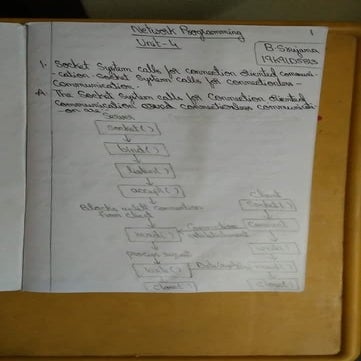 Network Programming
1
Unit-4
B. Srujana
1. Socket System calls for connection oriented communi-
-cation. socket system calls for connectionless-
communication.
A. The Socket System calls for Connection oriented
communication and connectionless communicati-
-on are
Server
socket()
bind()
listen()
accept()
Blocks until connection
from client
Client
Socket()
Connect
read()
Connection
establishment
write()
process request
write()
Data(reply)
read()
close()
close()